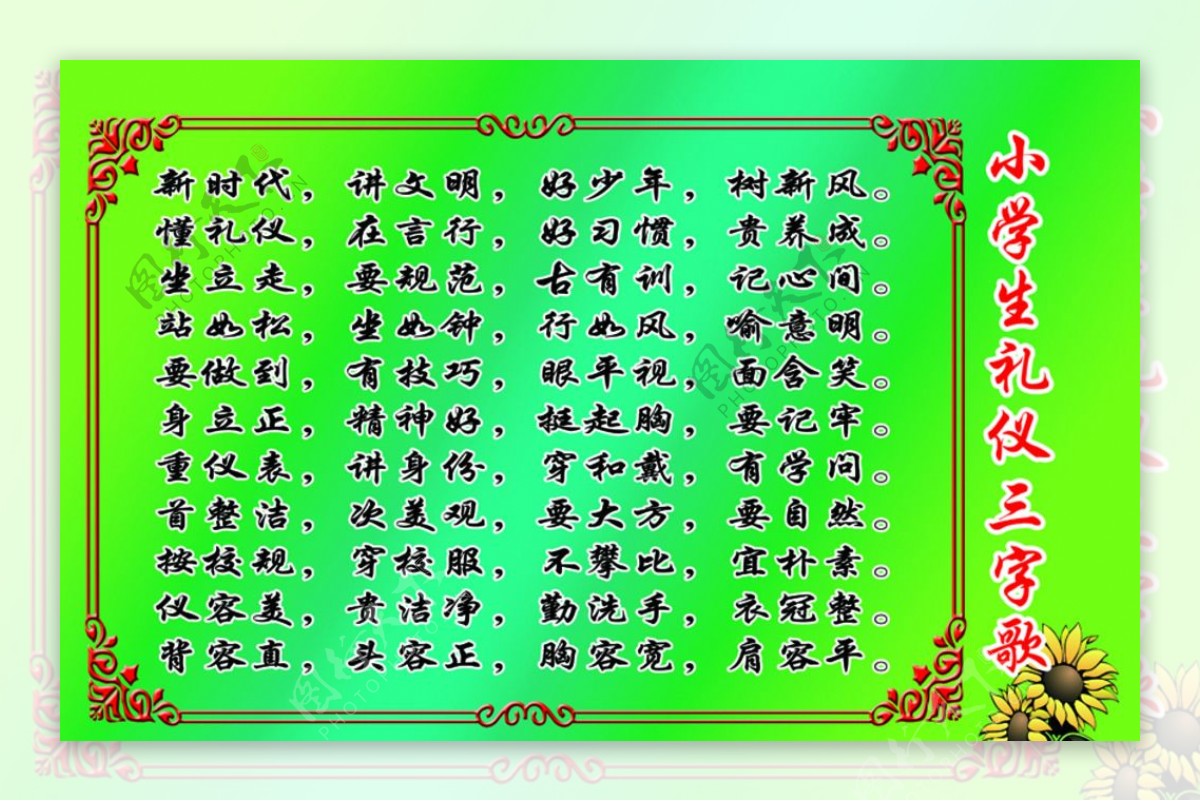 小学生礼仪三字歌
新时代，讲文明，好少年，树新风。
懂礼仪，在言行，好习惯，贵养成。
坐立走，要规范，古有训，记心间。
站如松，坐如钟，行如风，喻意明。
要做到，有技巧，眼平视，面含笑。
身立正，精神好，挺起胸，要记牢。
重仪表，讲身份，穿和戴，有学问。
首整洁，次美观，要大方，要自然。
按校规，穿校服，不攀比，宜朴素。
仪容美，贵洁净，勤洗手，衣冠整。
背容直，头容正，胸容宽，肩容平。